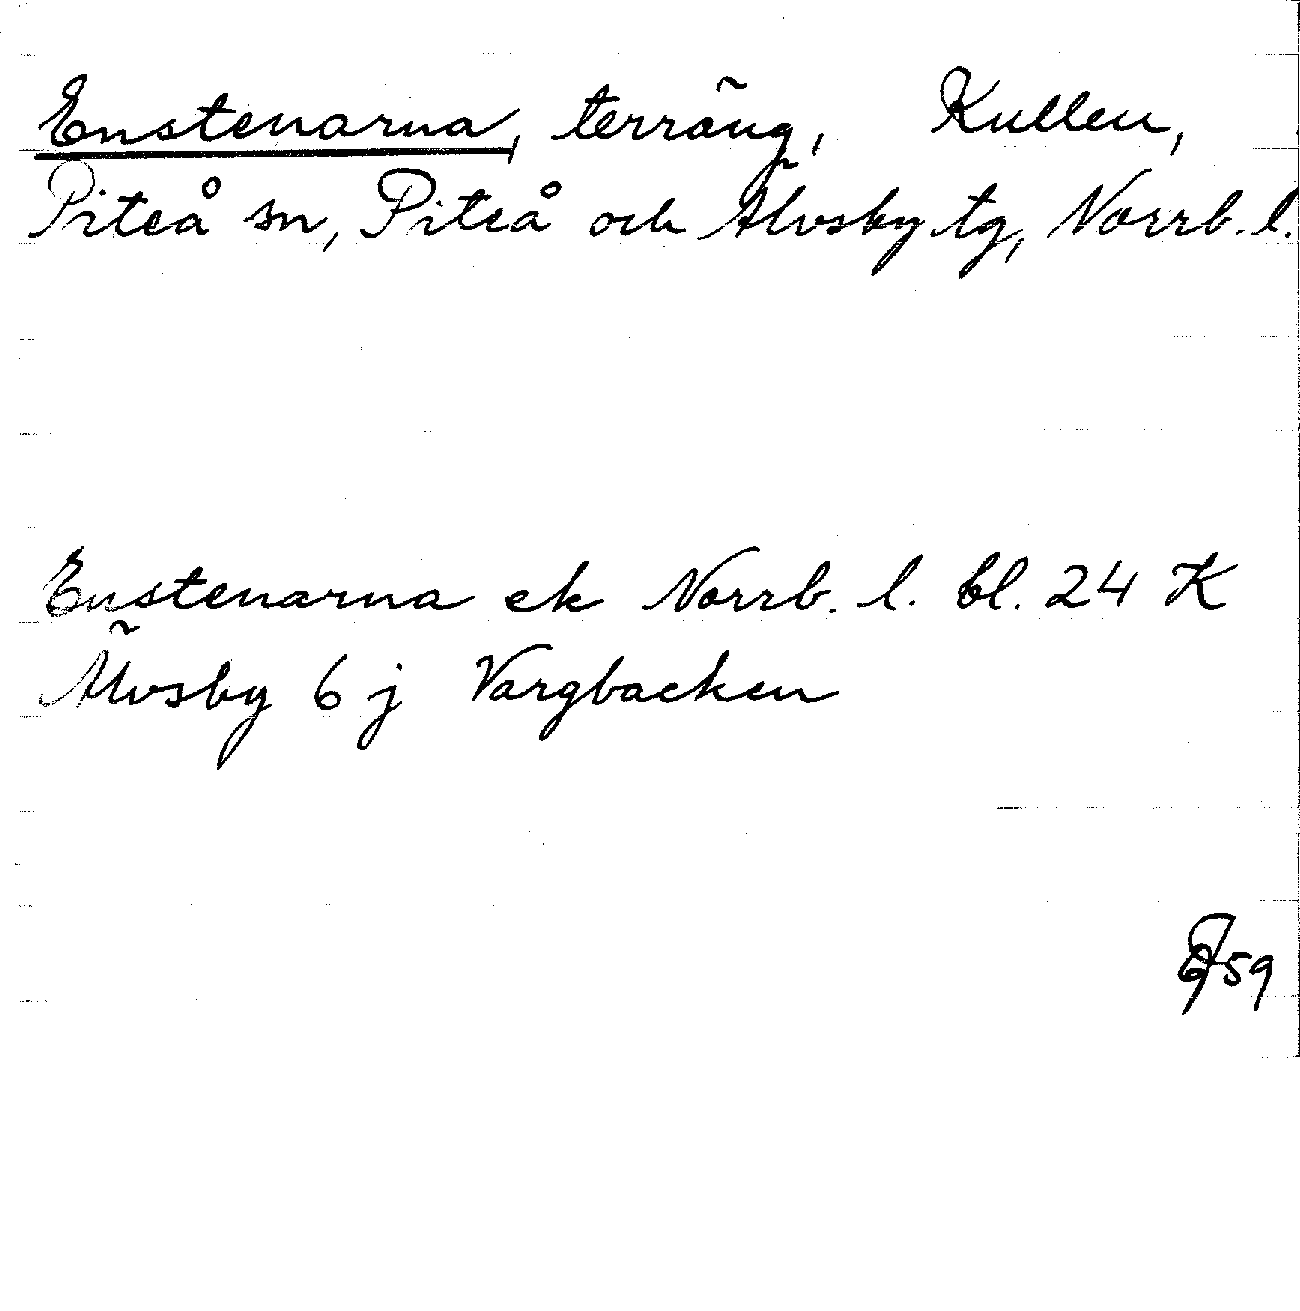 Enstenarna, terräng, Kullen,
Piteå sn, Piteå och Älvsby tg, Norrb. l.
Enstenarna ek Norrb. l. bl. 24 K
Älvsby 6 j Vargbacken
59